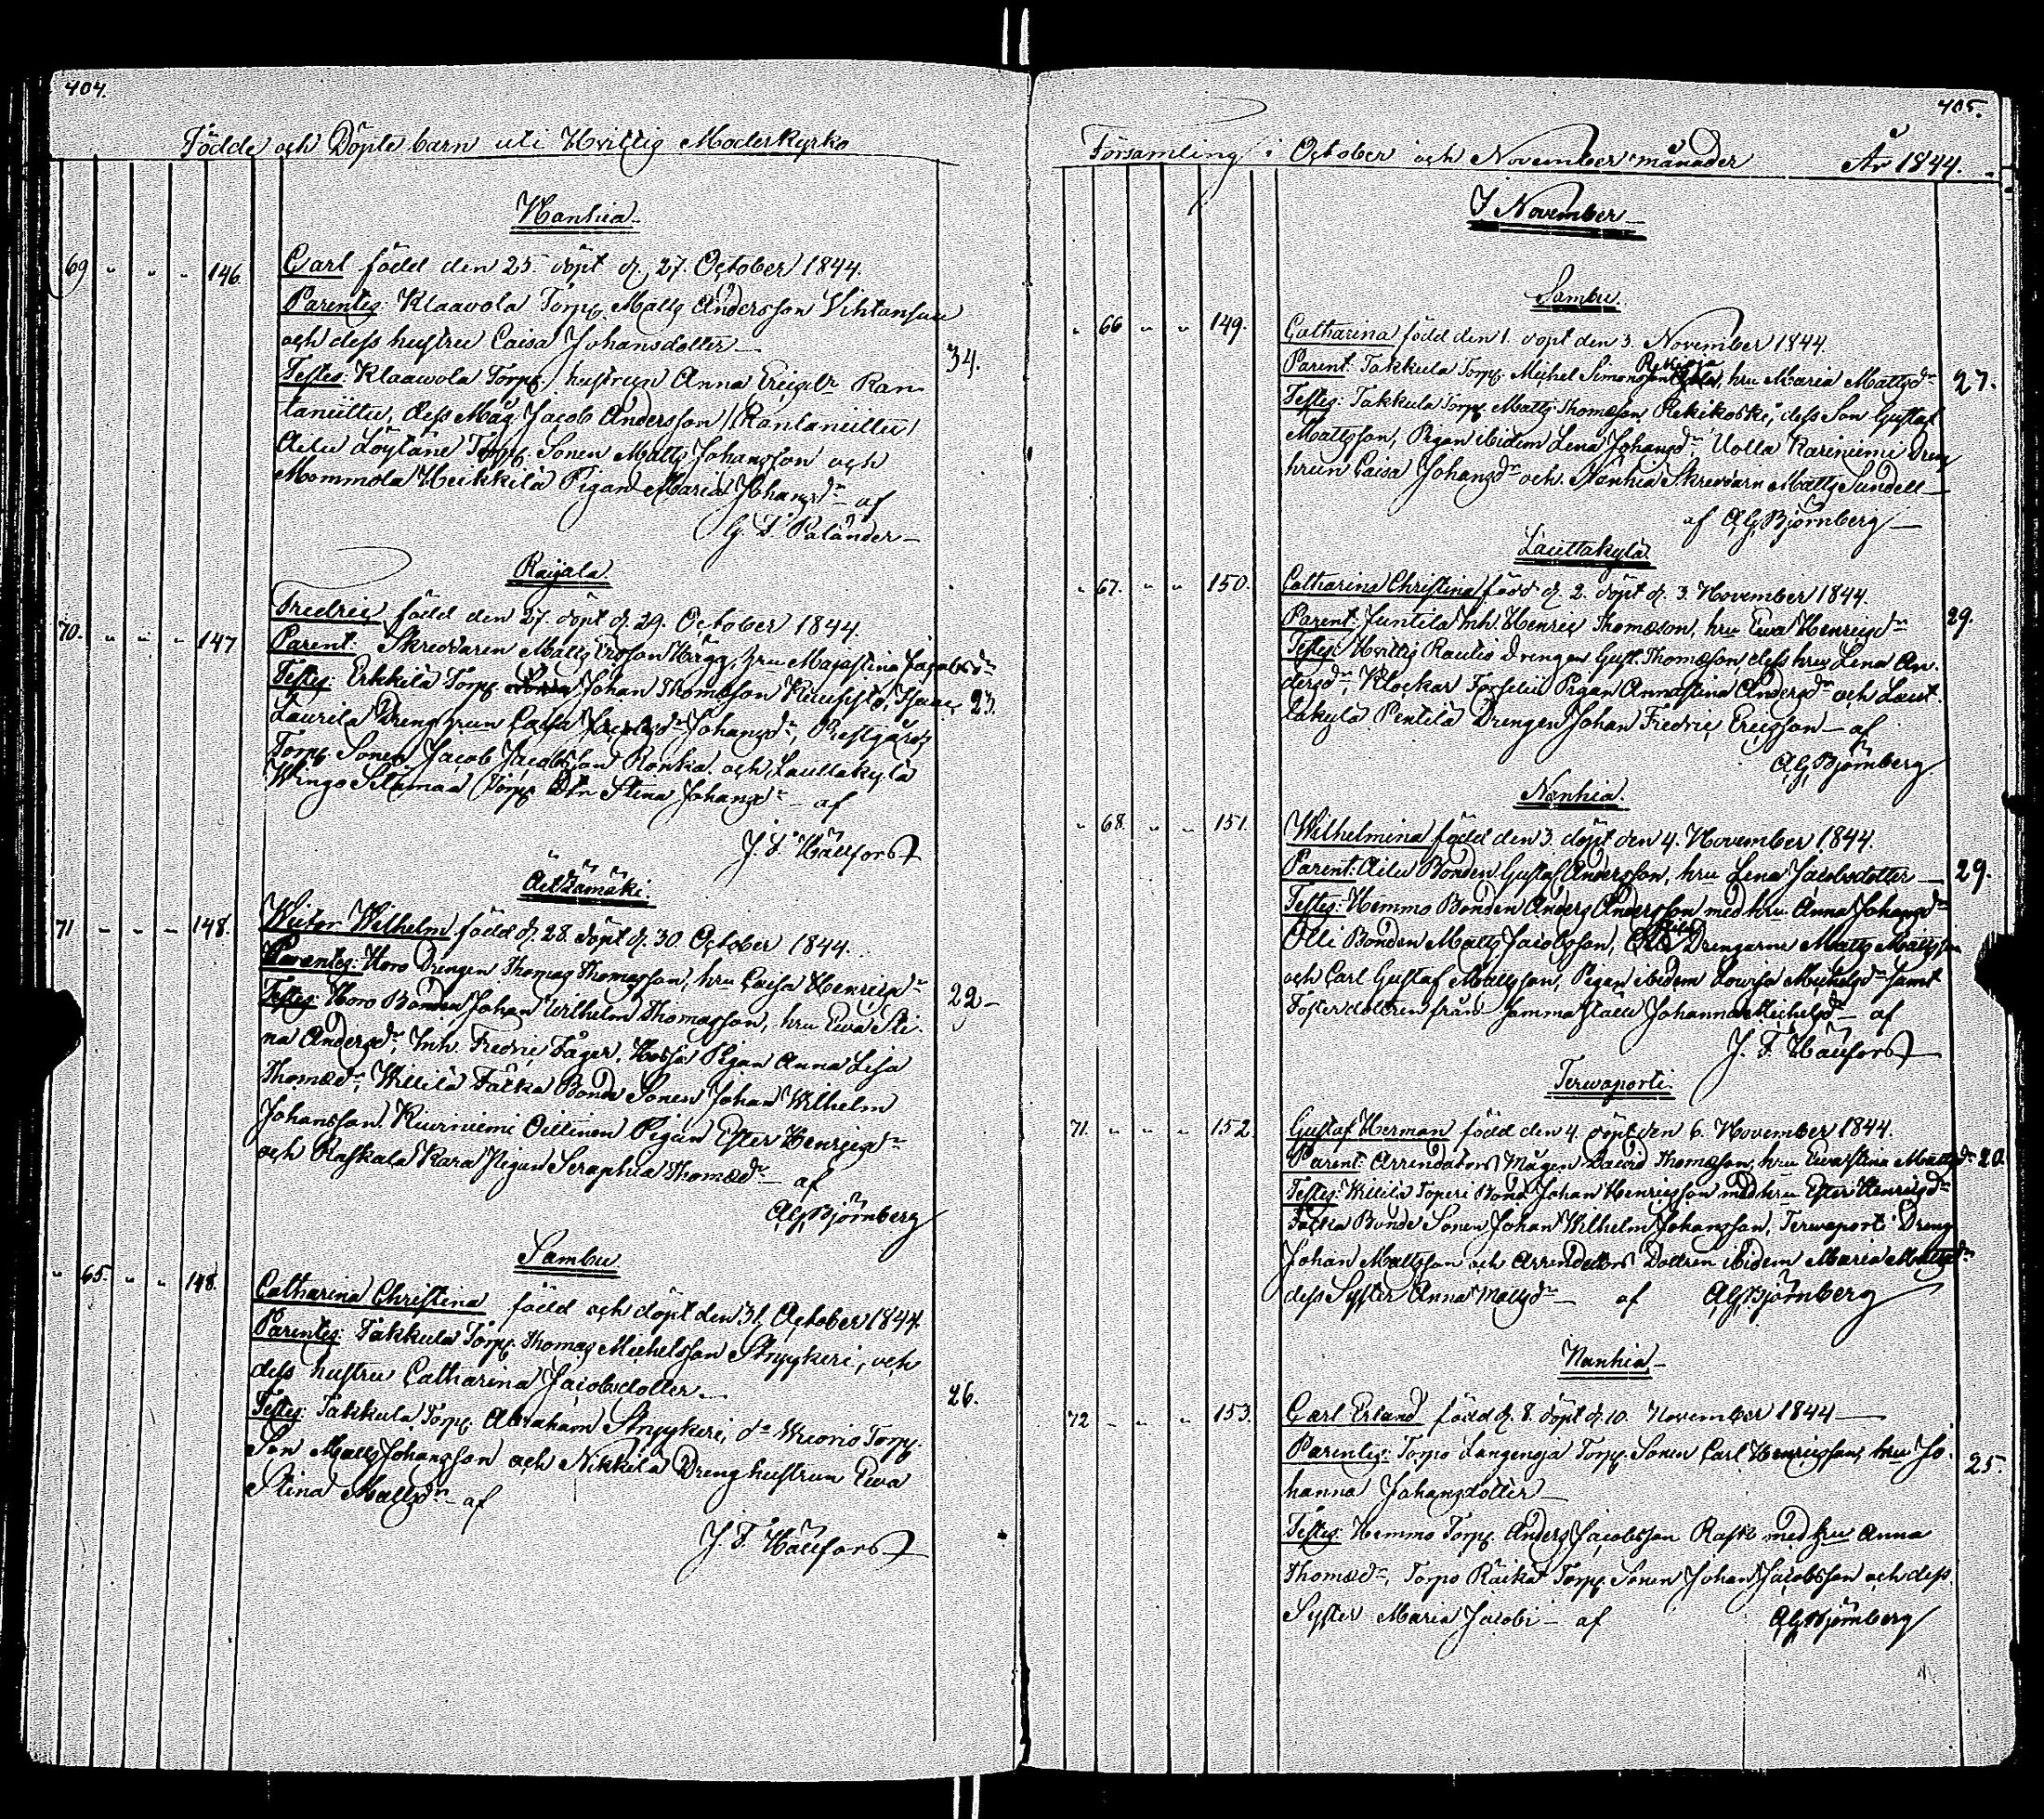 404.
Födde och Döpte barn uti Hvittis Moderkyrko
Nanhia
69 " " " 146. Carl född den 25. döpt d. 27. October 1844.
Parentes: Klaavola Torp. Matts Andersson
och dess hustru Caisa Johansdotter
34.
Testes: Klaawola Torp. hustrun Anna Ericsdr Ran
taniittu, dess Måg Jacob Andersson /Rantaniittu/
Löytäne Torp. Sonen Matts Johansson och
Mommola Heikkilä Pigan Maria Johansdr af
G. F. Palander
Raijala
70. " " " 147 Fredric född den 27. döpt d. 29. October 1844.
Parent: Skreddaren Matts Ersson Hägg, hru Majastina Jacobsdr
Testes: Erkkilä Torp. Johan Thomasson
23.
Laurila Dreng hrun Caisa Johansdr, Prestgårds
Torp. Sonen Jacob Jacobsson Ronka och Lauttakylä
Wingo Torp. Dtr Stina Johansdr af
J. F. Hällfors
71 " " " 148. Wictor Wilhelm född d. 28. döpt d. 30. October 1844.
Parentes: Horo Drengen Thomas Thomasson, hru Caisa Henricsdr
Testes: Horo Bonden Johan Wilhelm Thomasson, hru Ewa Sti
22
na Andersdr, Inh. Fredric Fager, Pigan Anna Lisa
Thomædr, Bonde Sonen Johan Wilhelm
Johansson, Kiviniemi Pigan Ester Henricsdr
och Raskala Kara Pigan Seraphia Thomædr af
AG Björnberg
Sambu
" 65. " " 148. Catharina Christina född och döpt den 31. October 1844.
Parentes: Takkula Torp. Thomas Michelsson Stryykeri, och
dess hustru Catharina Jacobsdotter
26.
Testes: Takkula Torp. Abraham Stryykeri, do Torp.
Son Matts Johansson och Nikkilä Dreng hustrun Ewa
Stina Mattsdr af
J. F. Hällfors
405.
Församling i October och November månader År 1844.
I November
Sambu.
" 66 " " 149. Catharina född den 1. döpt den 3. November 1844.
Parent: Takkula Torp. Michel Simonsson, hru Maria Mattsdr
27.
Testes: Takkula Torp. Matts Thomsson Rekikoski, dess Son Gustaf
Mattsson, Pigan ibidem Lena Johansdr, Uolla Kariniemi Dreng
hrun Caisa Johansdr och Nanhia Skreddarn Matts Sundell
af AG Björnberg
Lauttakylä
" 67. " " 150. Catharina Christina född d. 2. döpt d. 3. November 1844.
Parent: Juntila Inh. Henric Thomsson, hru Ewa Henricsdr
29.
Testes: Hvittis Rautio Drengen Gust. Thomsson dess hru Lena An
dersdr, Klockar Pigan Annastina Andersdr och Laut
takylä Pentilä Drengen Johan Fredric Ericsson af
AG Björnberg
Nanhia.
" 68. " " 151. Wilhelmina född den 3. döpt den 4. November 1844.
Parent: Bonden Gustaf Andersson, hru Lena Jacobsdotter
29.
Testes: Hemmo Bonden Anders Andersson med hru Anna Johansdr
Olli Bonden Matts Jacobsson, Drengarne Matts Mattsson
och Carl Gustaf Mattsson, Pigan ibidem Lowisa Michelsdr samt
Fosterdottren från samma ställe Johanna Michelsdr af
J. F. Hällfors
Terwaporti
71. " " " 152. Gustaf Herman född den 4. döpt den 6. November 1844.
Parent: Arrendators Mågen David Thomsson, hru Ewastina Mattsdr 20.
Testes: Toperi Bond Johan Henricsson med hru Ester Henricsdr
Bonde Sonen Johan Wilhelm Johansson, Terwaporti Dreng
Johan Mattsson och Arrendators Dottren ibidem Maria Mattsdr
dess Syster Anna Mattsdr af AG Björnberg
Nanhia
72 " " " 153. Carl Erland född d. 8. döpt d. 10. November 1844
Parentes: Torpo Torp. Sonen Carl Henricsson, hru Jo
hanna Johansdotter
25.
Testes: Hemmo Torp. Anders Jacobsson Rask med hru Anna
Thomædr, Torpo Torp. Sonen Johan Jacobsson och dess
Syster Maria Jacobi af AG Björnberg